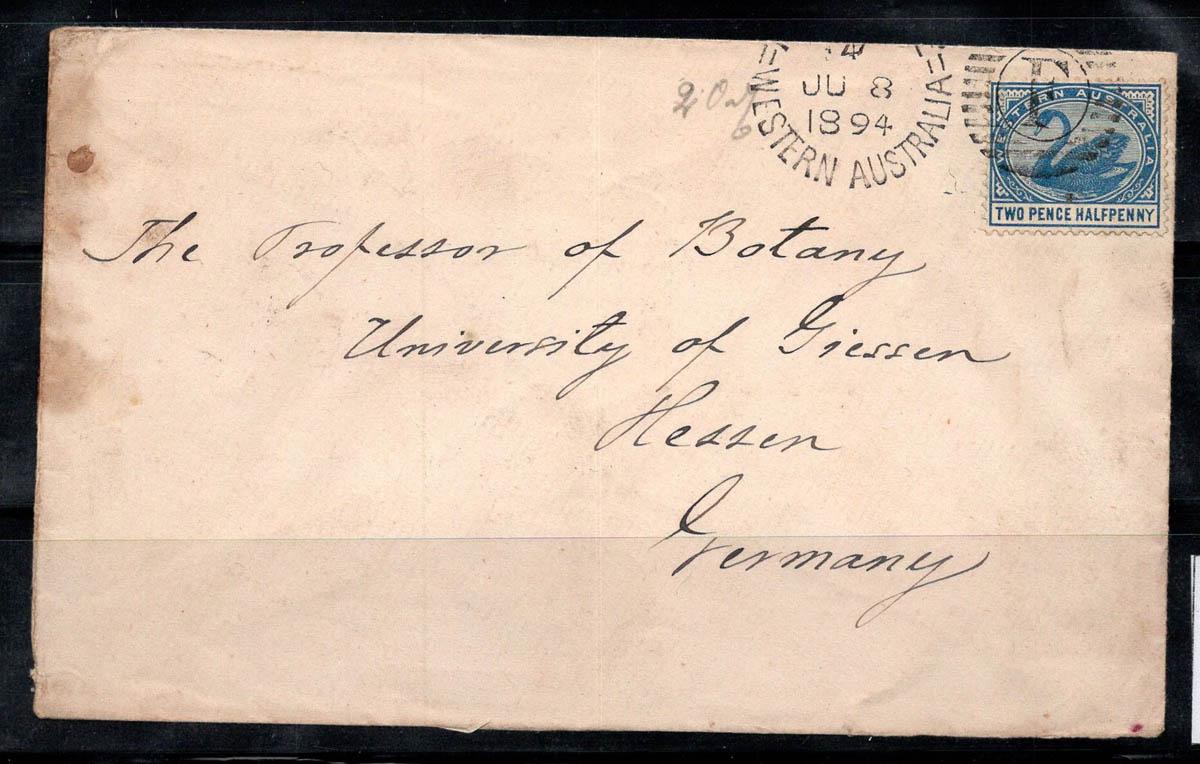 14
JU 8
1894
WESTERN AUSTRALIA
WESTERN AUSTRALIA
TWO PENCE HALFPENNY
The Professor of Botany
University of Giessen
Hessen
Germany